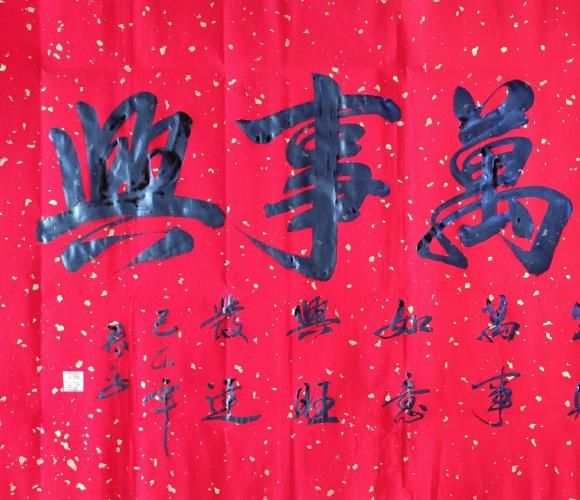 萬事興
萬事
如意
興旺
發達
己丑年